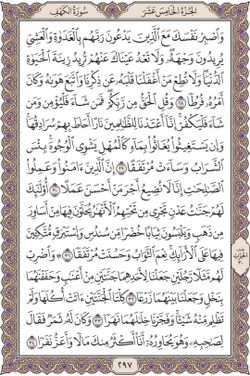 الجزء الخامس عشر
سورة الكهف
وَٱصۡبِرۡ نَفۡسَكَ مَعَ ٱلَّذِينَ يَدۡعُونَ رَبَّهُم بِٱلۡغَدَوٰةِ وَٱلۡعَشِيِّ
يُرِيدُونَ وَجۡهَهُۥۖ وَلَا تَعۡدُ عَيۡنَاكَ عَنۡهُمۡ تُرِيدُ زِينَةَ ٱلۡحَيَوٰةِ
ٱلدُّنۡيَاۖ وَلَا تُطِعۡ مَنۡ أَغۡفَلۡنَا قَلۡبَهُۥ عَن ذِكۡرِنَا وَٱتَّبَعَ هَوَىٰهُ وَكَانَ
أَمۡرُهُۥ فُرُطٗا ٢٨ وَقُلِ ٱلۡحَقُّ مِن رَّبِّكُمۡۖ فَمَن شَآءَ فَلۡيُؤۡمِن وَمَن
شَآءَ فَلۡيَكۡفُرۡۚ إِنَّآ أَعۡتَدۡنَا لِلظَّٰلِمِينَ نَارًا أَحَاطَ بِهِمۡ سُرَادِقُهَاۚ
وَإِن يَسۡتَغِيثُواْ يُغَاثُواْ بِمَآءٖ كَٱلۡمُهۡلِ يَشۡوِي ٱلۡوُجُوهَۚ بِئۡسَ
ٱلشَّرَابُ وَسَآءَتۡ مُرۡتَفَقًا ٢٩ إِنَّ ٱلَّذِينَ ءَامَنُواْ وَعَمِلُواْ
ٱلصَّٰلِحَٰتِ إِنَّا لَا نُضِيعُ أَجۡرَ مَنۡ أَحۡسَنَ عَمَلًا ٣٠ أُوْلَٰٓئِكَ
لَهُمۡ جَنَّٰتُ عَدۡنٖ تَجۡرِي مِن تَحۡتِهِمُ ٱلۡأَنۡهَٰرُ يُحَلَّوۡنَ فِيهَا مِنۡ أَسَاوِرَ
مِن ذَهَبٖ وَيَلۡبَسُونَ ثِيَابًا خُضۡرٗا مِّن سُندُسٖ وَإِسۡتَبۡرَقٖ مُّتَّكِـِٔينَ
فِيهَا عَلَى ٱلۡأَرَآئِكِۚ نِعۡمَ ٱلثَّوَابُ وَحَسُنَتۡ مُرۡتَفَقٗا ٣١ ۞ وَٱضۡرِبۡ
لَهُم مَّثَلٗا رَّجُلَيۡنِ جَعَلۡنَا لِأَحَدِهِمَا جَنَّتَيۡنِ مِنۡ أَعۡنَٰبٖ وَحَفَفۡنَٰهُمَا
بِنَخۡلٖ وَجَعَلۡنَا بَيۡنَهُمَا زَرۡعٗا ٣٢ كِلۡتَا ٱلۡجَنَّتَيۡنِ ءَاتَتۡ أُكُلَهَا وَلَمۡ
تَظۡلِم مِّنۡهُ شَيۡـٔٗاۚ وَفَجَّرۡنَا خِلَٰلَهُمَا نَهَرٗا ٣٣ وَكَانَ لَهُۥ ثَمَرٞ فَقَالَ
لِصَٰحِبِهِۦ وَهُوَ يُحَاوِرُهُۥٓ أَنَا۠ أَكۡثَرُ مِنكَ مَالٗا وَأَعَزُّ نَفَرٗا ٣٤
٢٩٧